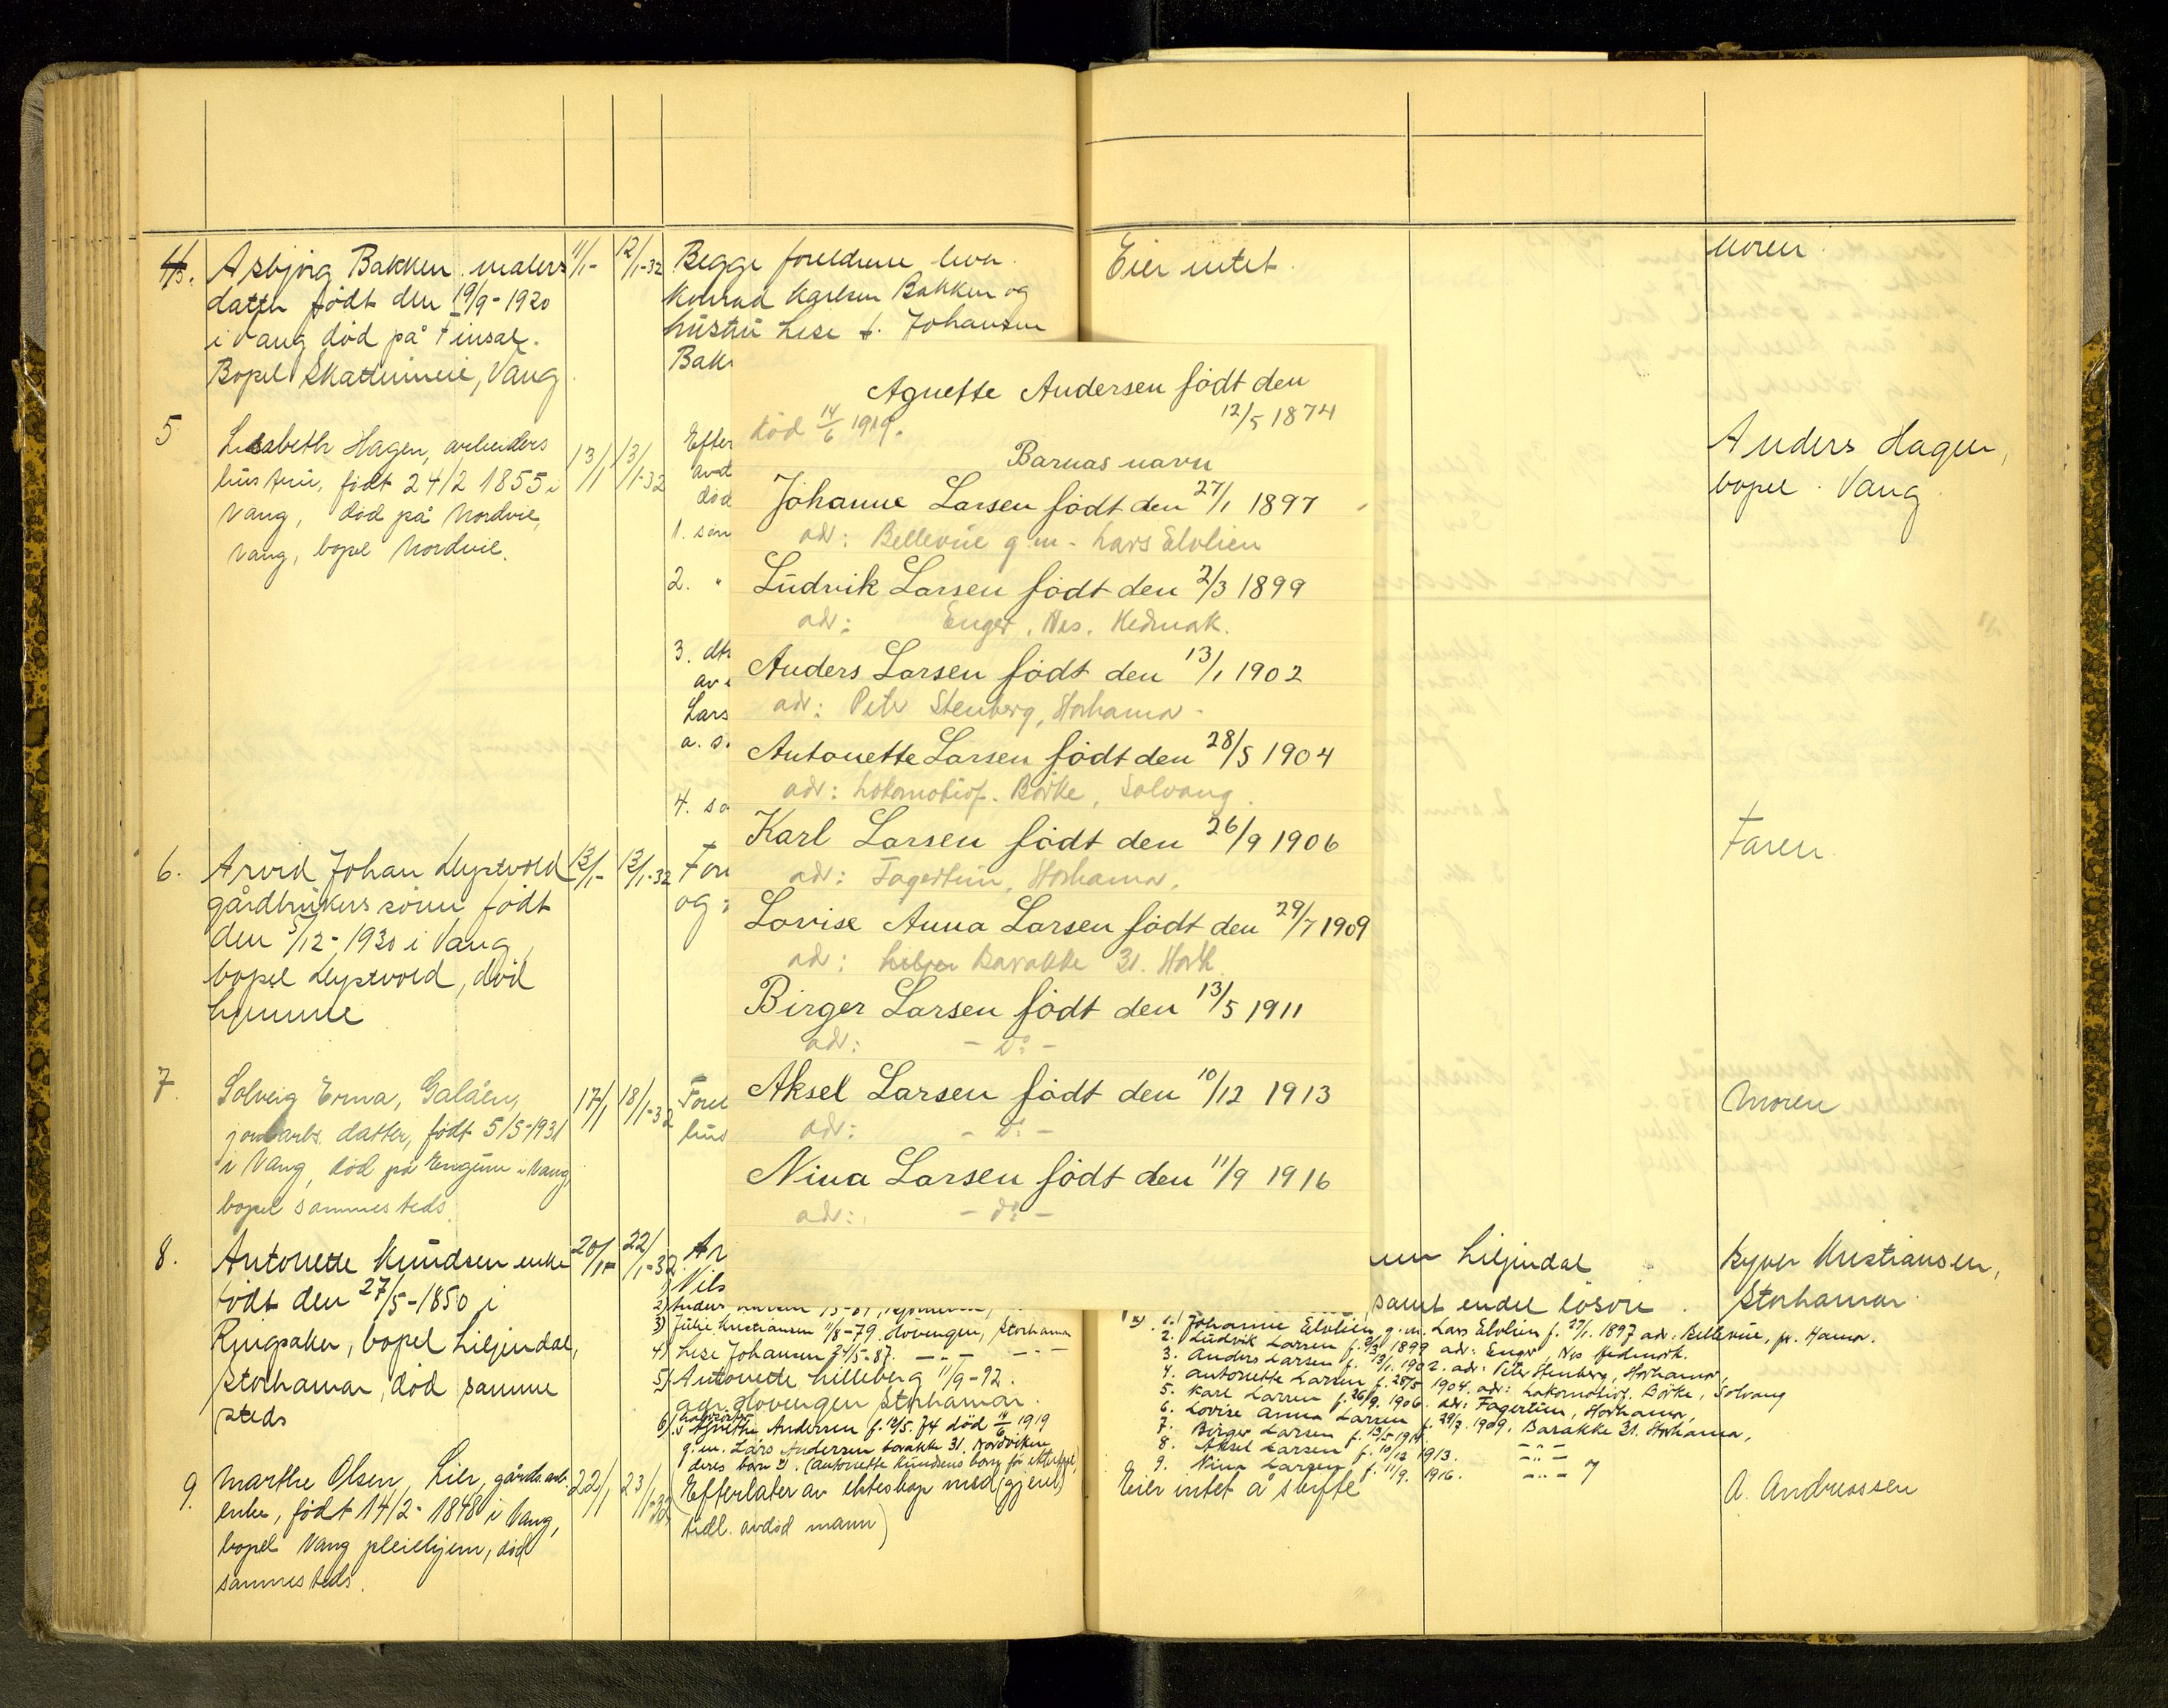 4. Asbjörg Bakken malers 11/1- 12/1-32 Begge foreldrene lever. Eier intet. Moren
datter født den 19/9-1920 Konrad Karlsen Bakken og
i Vang død på Finsal. hustru Lise f. Johansen
Bopel Skattumeie, Vang. Bak
5 Lisabeth Hagen, arbeiders 13/1 13/1-32 Efter Anders Hagen,
hustru, født 24/2 1855 i avd bopel Vang.
Vang, død på Nordvie, død
Vang, bopel Nordvie. 1. søn
2. "
3. dtr
av
Lars
a. s.
4. sø
6. Arvid Johan 13/1- 13/1-32 For Faren.
gårdbrukers sønn født og
den 5/12-1930 i Vang,
bopel død
hjemme
7. Solveig Erna, Galåen, 17/1 18/1-32 Forel Moren
jordarb. datter, født 5/5-1931 hus
i Vang, død på Engum i Vang,
bopel sammesteds.
8. Antonette Knudsen enke 20/1- 22/1-32. Ar Liljendal Kristiansen,
født den 27/5-1850 i 1) Nils samt endel løsøre. Storhamar
Ringsaker, bopel Liljendal, 2) Anders
Storhamar, død samme 3) Julie Kristiansen 11/8-79. Hövengen, Storhamar
steds 4) Lise Johansen 24/5-87. -"- -"-
5) Antonette Lilleberg 11/9-92.
adr. Hovengen Storhamar.
6) Agnethe Andersen f. 12/5. 74 død 14/6 1919
g.m. Lars Andersen barakke 31. Nordviken
deres barn x). (Antonette Knudsens
x). 1. Johanne Elvlien g.m. Lars Elvlien f. 27/1. 1897 adr: Bellevue, pr. Hamar.
2. Ludvik Larsen f. 2/3 1899 adr: Enger, Nes Hedmark.
3. Anders Larsen f. 13/1. 1902. adr: Peter Stenberg, Storhamar,
4. Antonette Larsen f. 28/5 1904. adr: Lokomotivf. Börke, Solvang
5. Karl Larsen f. 26/9. 1906. adr: Fagertun, Storhamar,
6. Lovise Anna Larsen f. 29/7. 1909. Barakke 31. Storhamar,
7. Birger Larsen f. 13/5 1911.
8. Aksel Larsen f. 10/12 1913. -"-
9. Nina Larsen f. 11/9. 1916. -"-
9. Marthe Olsen, Lier, gårdsarb. 22/1 23/1-32 (Efterlater av ekteskap med (gjenl) Eier intet å skifte A. Andreassen
enke, født 14/2-1848 i Vang, tidl. avdød mann)
bopel Vang pleiehjem, død
sammesteds.
Agnette Andersen født den
12/5 1874
død 14/6 1919.
Barnas navn
Johanne Larsen født den 27/1 1897
adr: Bellevue g.m. Lars Elvlien
Ludvik Larsen født den 2/3 1899
adr: Enger, Nes, Hedmak.
Anders Larsen født den 13/1 1902
adr: Peter Stenberg, Storhamar
Antonette Larsen født den 28/5 1904
adr: Lokomotivf. Börke, Solvang.
Karl Larsen født den 26/9 1906
adr: Fagertun, Storhamar.
Lovise Anna Larsen født den 29/7 1909
adr: Barakke 31. Storh.
Birger Larsen født den 13/5 1911
adr: - do -
Aksel Larsen født den 10/12 1913
adr: - do -
Nina Larsen født den 11/9 1916
adr: - do -